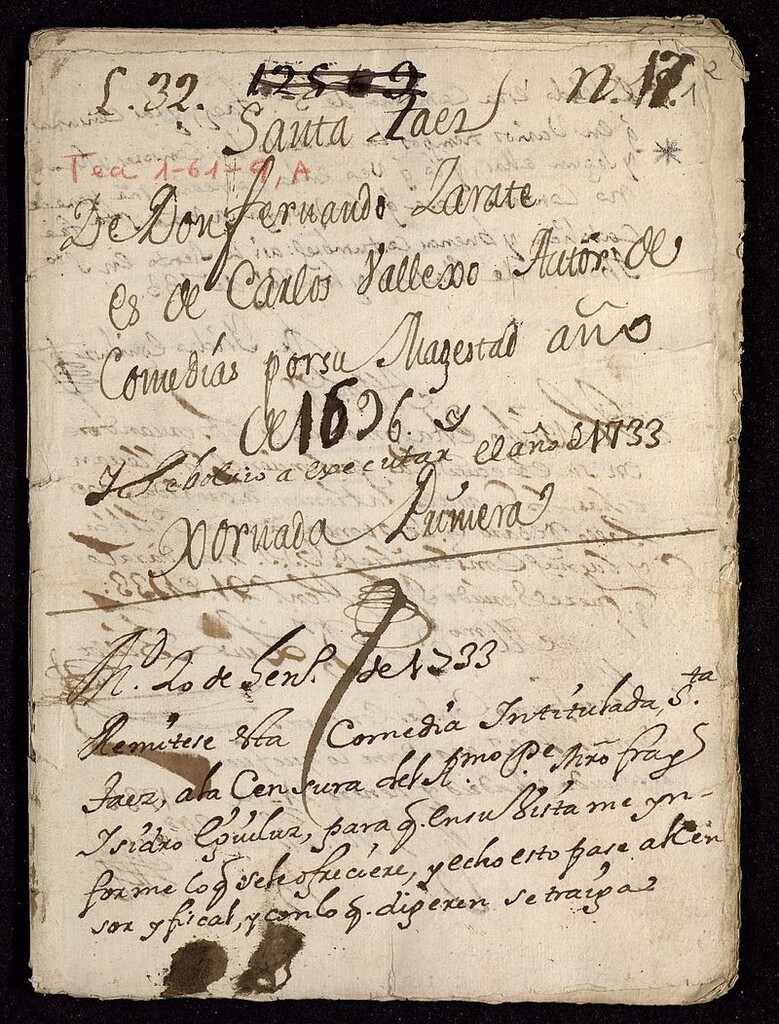 L. 32. 12569. n. 17. 1 2
Santa Taez
Tea 1-61-9, A
De Don fernando Zarate
es de Carlos Vallexo Autor de
Comedias por su Magestad año
de 1696. y
Y se bolbio a executar el año d 1733
Xornada Primera
M.d 20 de Hen.o de 1733
Remitese esta Comedia Intitulada, S.ta
Taez, a la Censura del R.mo P.e Mro fray
Isidro Eguiluz, para q. en su Vista me yn-
forme lo q se le ofreciere, y echo esto pase al Cen
sor y fiscal, y con lo q. digeren se traiga